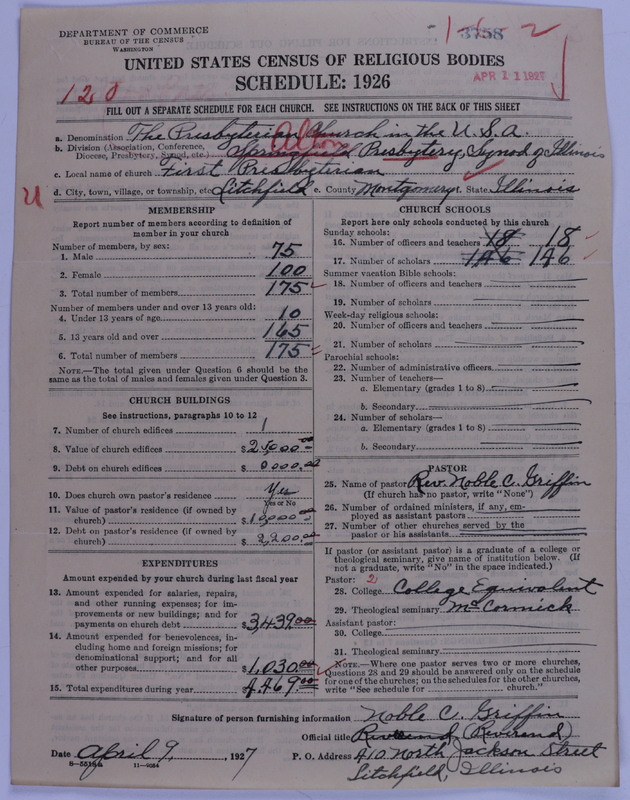 DEPARTMENT OF COMMERCE
BUREAU OF THE CENSUS
WASHINGTON
3758
1-6-2
UNITED STATES CENSUS OF RELIGIOUS BODIES
APR 11 1927
SCHEDULE: 1926
120
FILL OUT A SEPARATE SCHEDULE FOR EACH CHURCH. SEE INSTRUCTIONS ON THE BACK OF THIS SHEET
a. Denomination The Presbyterian Church in the U.S.A.
b. Division (Association, Conference, Diocese, Presbytery, Synod, etc.) Springfield Presbytery, Synod of Illinois
Alton
c. Local name of church First Presbyterian
d. City, town, village, or township, etc. Litchfield e. County Montgomery f. State Illinois
MEMBERSHIP
Report number of members according to definition of
member in your church
Number of members, by sex:
1. Male 75
2. Female 100
3. Total number of members 175
Number of members under and over 13 years old:
4. Under 13 years of age 10
5. 13 years old and over 165
6. Total number of members 175
NOTE.—The total given under Question 6 should be
same as the total of males and females given under Question 3.
CHURCH BUILDINGS
See instructions, paragraphs 10 to 12
7. Number of church edifices 1
8. Value of church edifices $25000.00
9. Debt on church edifices $0000.00
10. Does church own pastor's residence Yes
Yes or No
11. Value of pastor's residence (if owned by
church) $10000.00
12. Debt on pastor's residence (if owned by
church) $2,200.00
EXPENDITURES
Amount expended by your church during last fiscal year
13. Amount expended for salaries, repairs,
and other running expenses; for im-
provements or new buildings; and for
payments on church debt $3,439.00
14. Amount expended for benevolences, in-
cluding home and foreign missions; for
denominational support; and for all
other purposes $1,030.00
15. Total expenditures during year 4,469.00
CHURCH SCHOOLS
Report here only schools conducted by this church
Sunday schools:
16. Number of officers and teachers 18 18
17. Number of scholars 146 146
Summer vacation Bible schools:
18. Number of officers and teachers
19. Number of scholars
Week-day religious schools:
20. Number of officers and teachers
21. Number of scholars
Parochial schools:
22. Number of administrative officers
23. Number of teachers—
a. Elementary (grades 1 to 8)
b. Secondary
24. Number of scholars—
a. Elementary (grades 1 to 8)
b. Secondary
PASTOR
25. Name of pastor Rev. Noble C. Griffin
(If church has no pastor, write "None")
26. Number of ordained ministers, if any, em-
ployed as assistant pastors
27. Number of other churches served by the
pastor or his assistants
If pastor (or assistant pastor) is a graduate of a college or
theological seminary, give name of institution below. (If
not a graduate, write "No" in the space indicated.)
Pastor: 2
28. College College Equivalent
29. Theological seminary McCormick
Assistant pastor:
30. College
31. Theological seminary
NOTE.—Where one pastor serves two or more churches,
Questions 28 and 29 should be answered only on the schedule
for one of the churches; on the schedules for the other churches,
write "See schedule for church."
Signature of person furnishing information Noble C. Griffin
Official title (Reverend)
Date April 9, 1927 P. O. Address 410 North Jackson Street
8-5518a 11-9054 Litchfield, Illinois